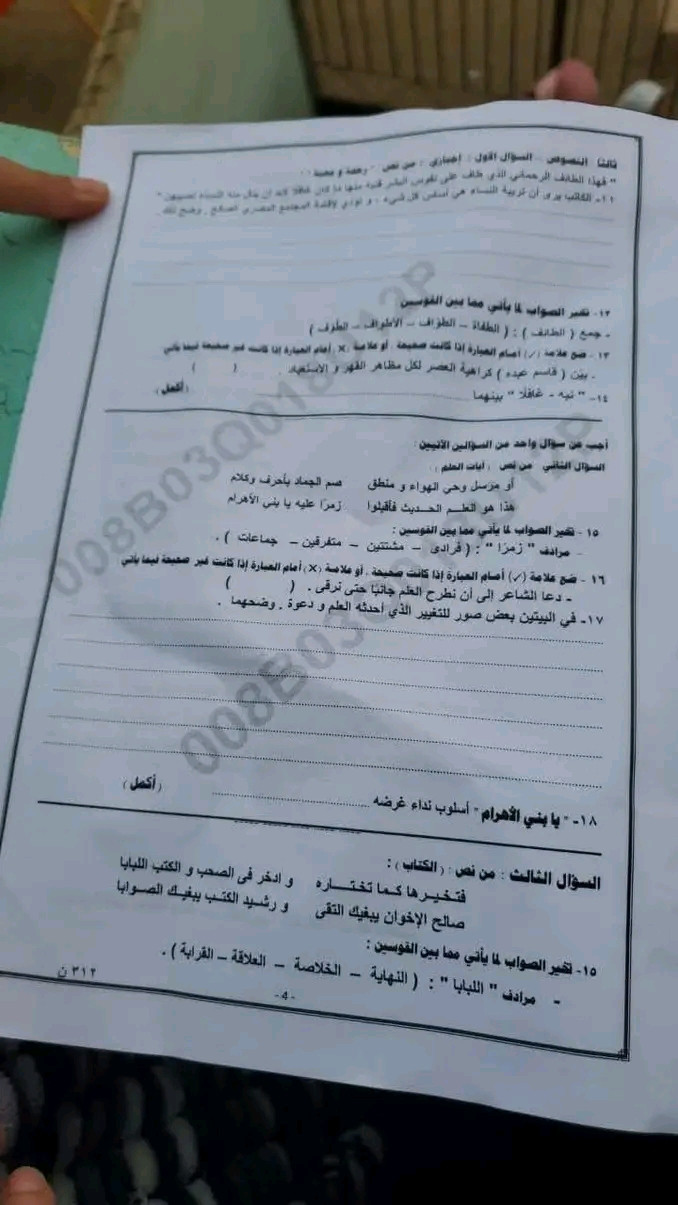 ثالثا النصوص : السؤال الأول : إجباري : من نص : " رحمة و محبة " :
" فهذا الطائف الرحماني الذي طاف على نفوس البشر فنبه منها ما كان غافلا لابد أن ينال منه النساء نصيبهن "
١١- الكاتب يرى أن تربية النساء هي أساس كل شيء ، و تؤدي لإقامة المجتمع المصري الصالح . وضح ذلك .
١٢- تخير الصواب لما يأتي مما بين القوسين
- جمع ( الطائف ) : ( الطغاة – الطوَّاف – الأطواف – الطُوَّف )
١٣- ضع علامة (✓) أمام العبارة إذا كانت صحيحة ، أو علامة (×) أمام العبارة إذا كانت غير صحيحة فيما يأتي
- بيَّن ( قاسم عبده ) كراهية العصر لكل مظاهر القهر و الاستعباد . ( )
١٤- " نبه - غافلًا " بينهما (أكمل)
أجب عن سؤال واحد من السؤالين الآتيين :
السؤال الثاني من نص ( آيات العلم ) :
أو مرسل وحي الهواء و منطق صم الجماد بأحرف وكلام
هذا هو العلم الحديث فأقبلوا زمرًا عليه يا بني الأهرام
١٥- تخير الصواب لما يأتي مما بين القوسين :
- مرادف " زمرًا " : ( فرادى – مشتتين – متفرقين – جماعات ) .
١٦- ضع علامة (✓) أمام العبارة إذا كانت صحيحة ، أو علامة (×) أمام العبارة إذا كانت غير صحيحة فيما يأتي
- دعا الشاعر إلى أن نطرح العلم جانبًا حتى نرقى . ( )
١٧- في البيتين بعض صور للتغيير الذي أحدثه العلم و دعوة . وضحهما .
١٨- " يا بني الأهرام " أسلوب نداء غرضه (أكمل)
السؤال الثالث : من نص : (الكتاب) :
فتخيرها كما تختاره و ادخر فى الصحب و الكتب اللبابا
صالح الإخوان يبغيك التقى و رشيد الكتب يبغيك الصوابا
١٥- تخير الصواب لما يأتي مما بين القوسين :
- مرادف " اللبابا " : ( النهاية – الخلاصة – العلاقة – القرابة ) .
- 4 -
٣١٢ ن